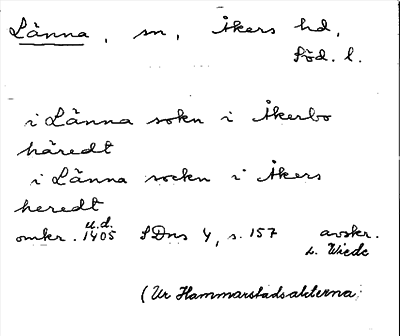 Länna, sn, Åkers hd,
Söd. l.
i Länna sokn i Åkerbo
häredt
i Länna sockn i Åkers
heredt
u.d.
omkr. 1405 SDns 4, s. 157 avskr.
h. Wiede
(Ur Hammarstadsakterna